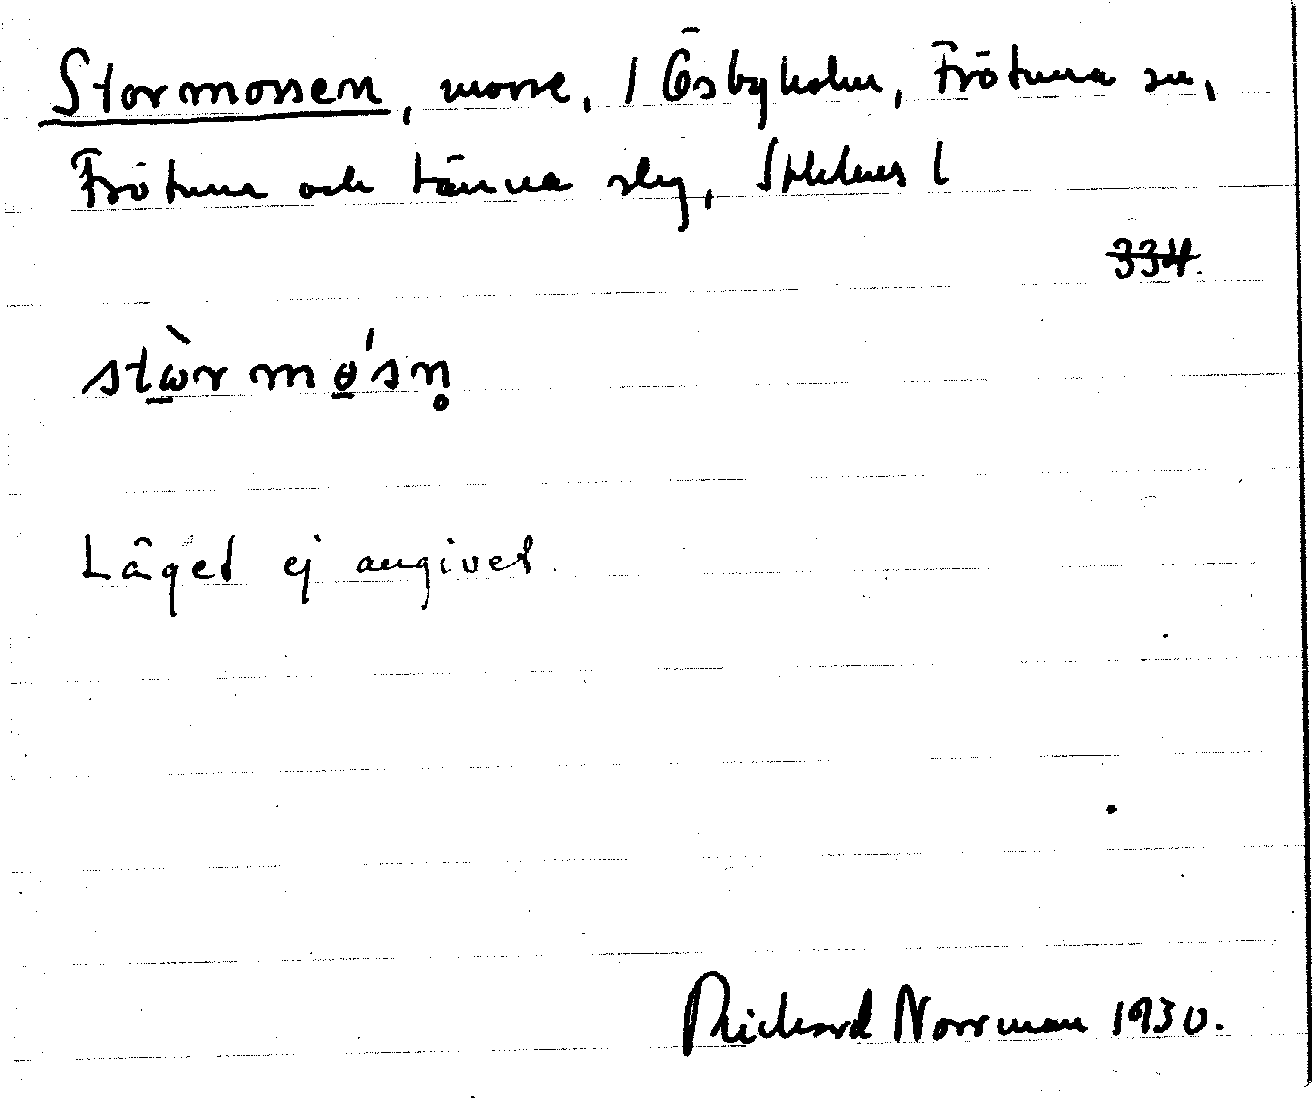 Stormossen, mosse, / Ösbyholm, Frötuna sn,
Frötuna och Länna slg, Sthlms l
334.
stὼ̠r mө̠́sn̥
Läget ej angivet.
Richard Norrman 1930.